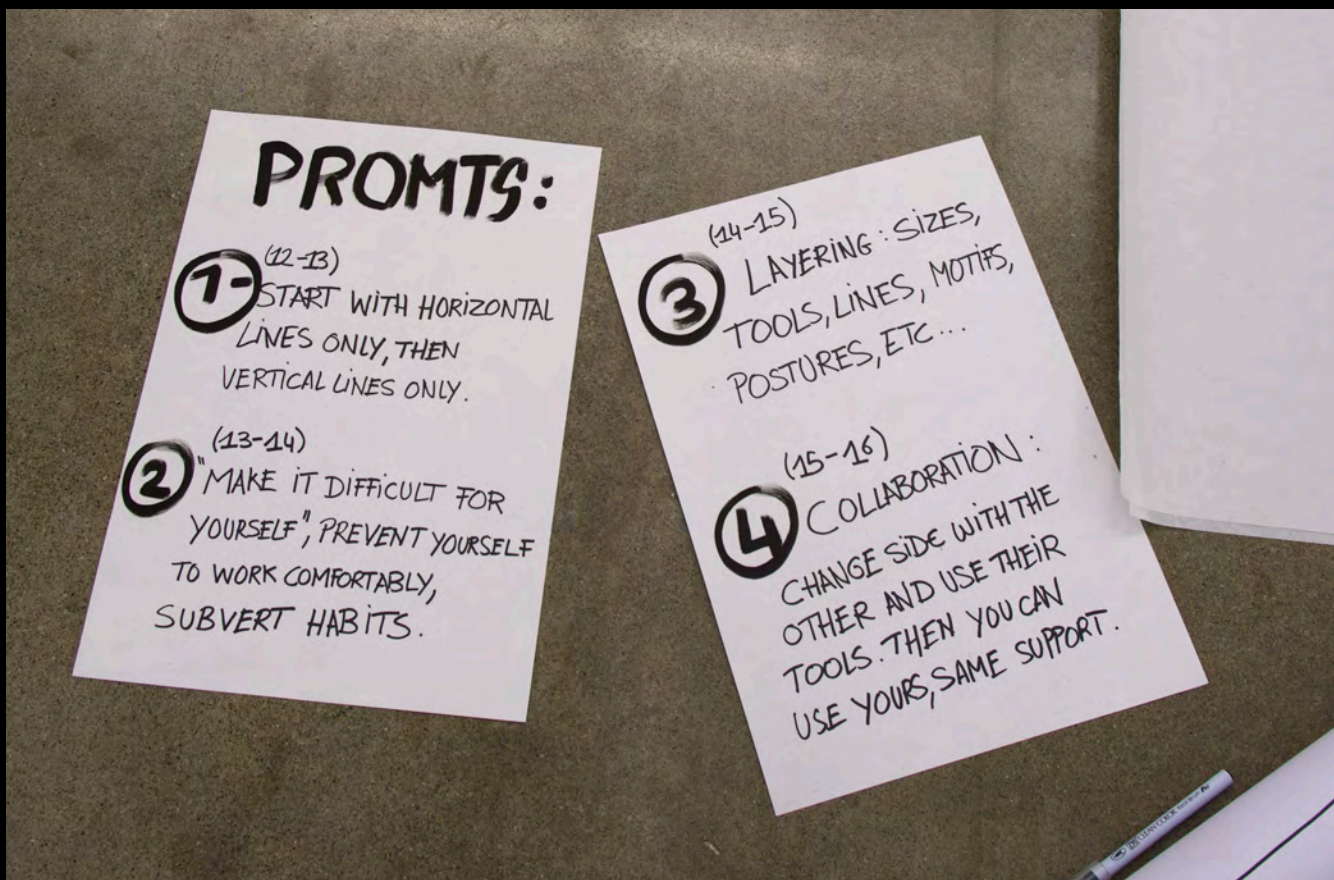 PROMTS:
(12-13)
1- START WITH HORIZONTAL
LINES ONLY, THEN
VERTICAL LINES ONLY.
(13-14)
2 "MAKE IT DIFFICULT FOR
YOURSELF", PREVENT YOURSELF
TO WORK COMFORTABLY,
SUBVERT HABITS.
(14-15)
3 LAYERING: SIZES,
TOOLS, LINES, MOTIFS,
POSTURES, ETC...
(15-16)
4 COLLABORATION:
CHANGE SIDE WITH THE
OTHER AND USE THEIR
TOOLS. THEN YOU CAN
USE YOURS, SAME SUPPORT.
CLEAN COLOR